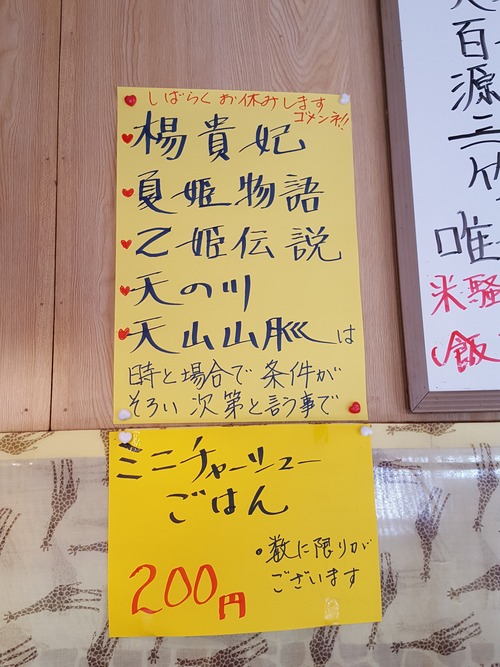 しばらくお休みします
ゴメンネ!!
楊貴妃
夏姫物語
乙姫伝説
天の川
天山山脈は
時と場合で条件が
そろい次第と言う事で
ミニチャーシュー
ごはん
•数に限りが
ございます
200円
百
源
唯
米騒
飯